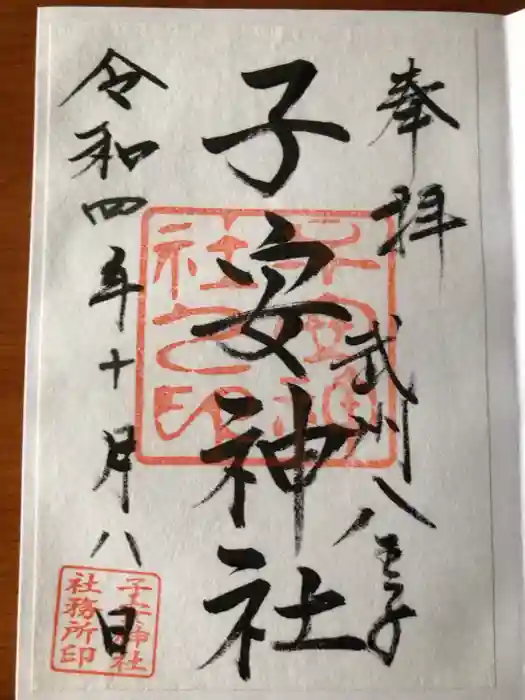 奉拝
武州八王子
子安神社
子安神社之印
令和四年十月八日
子安神社
社務所印